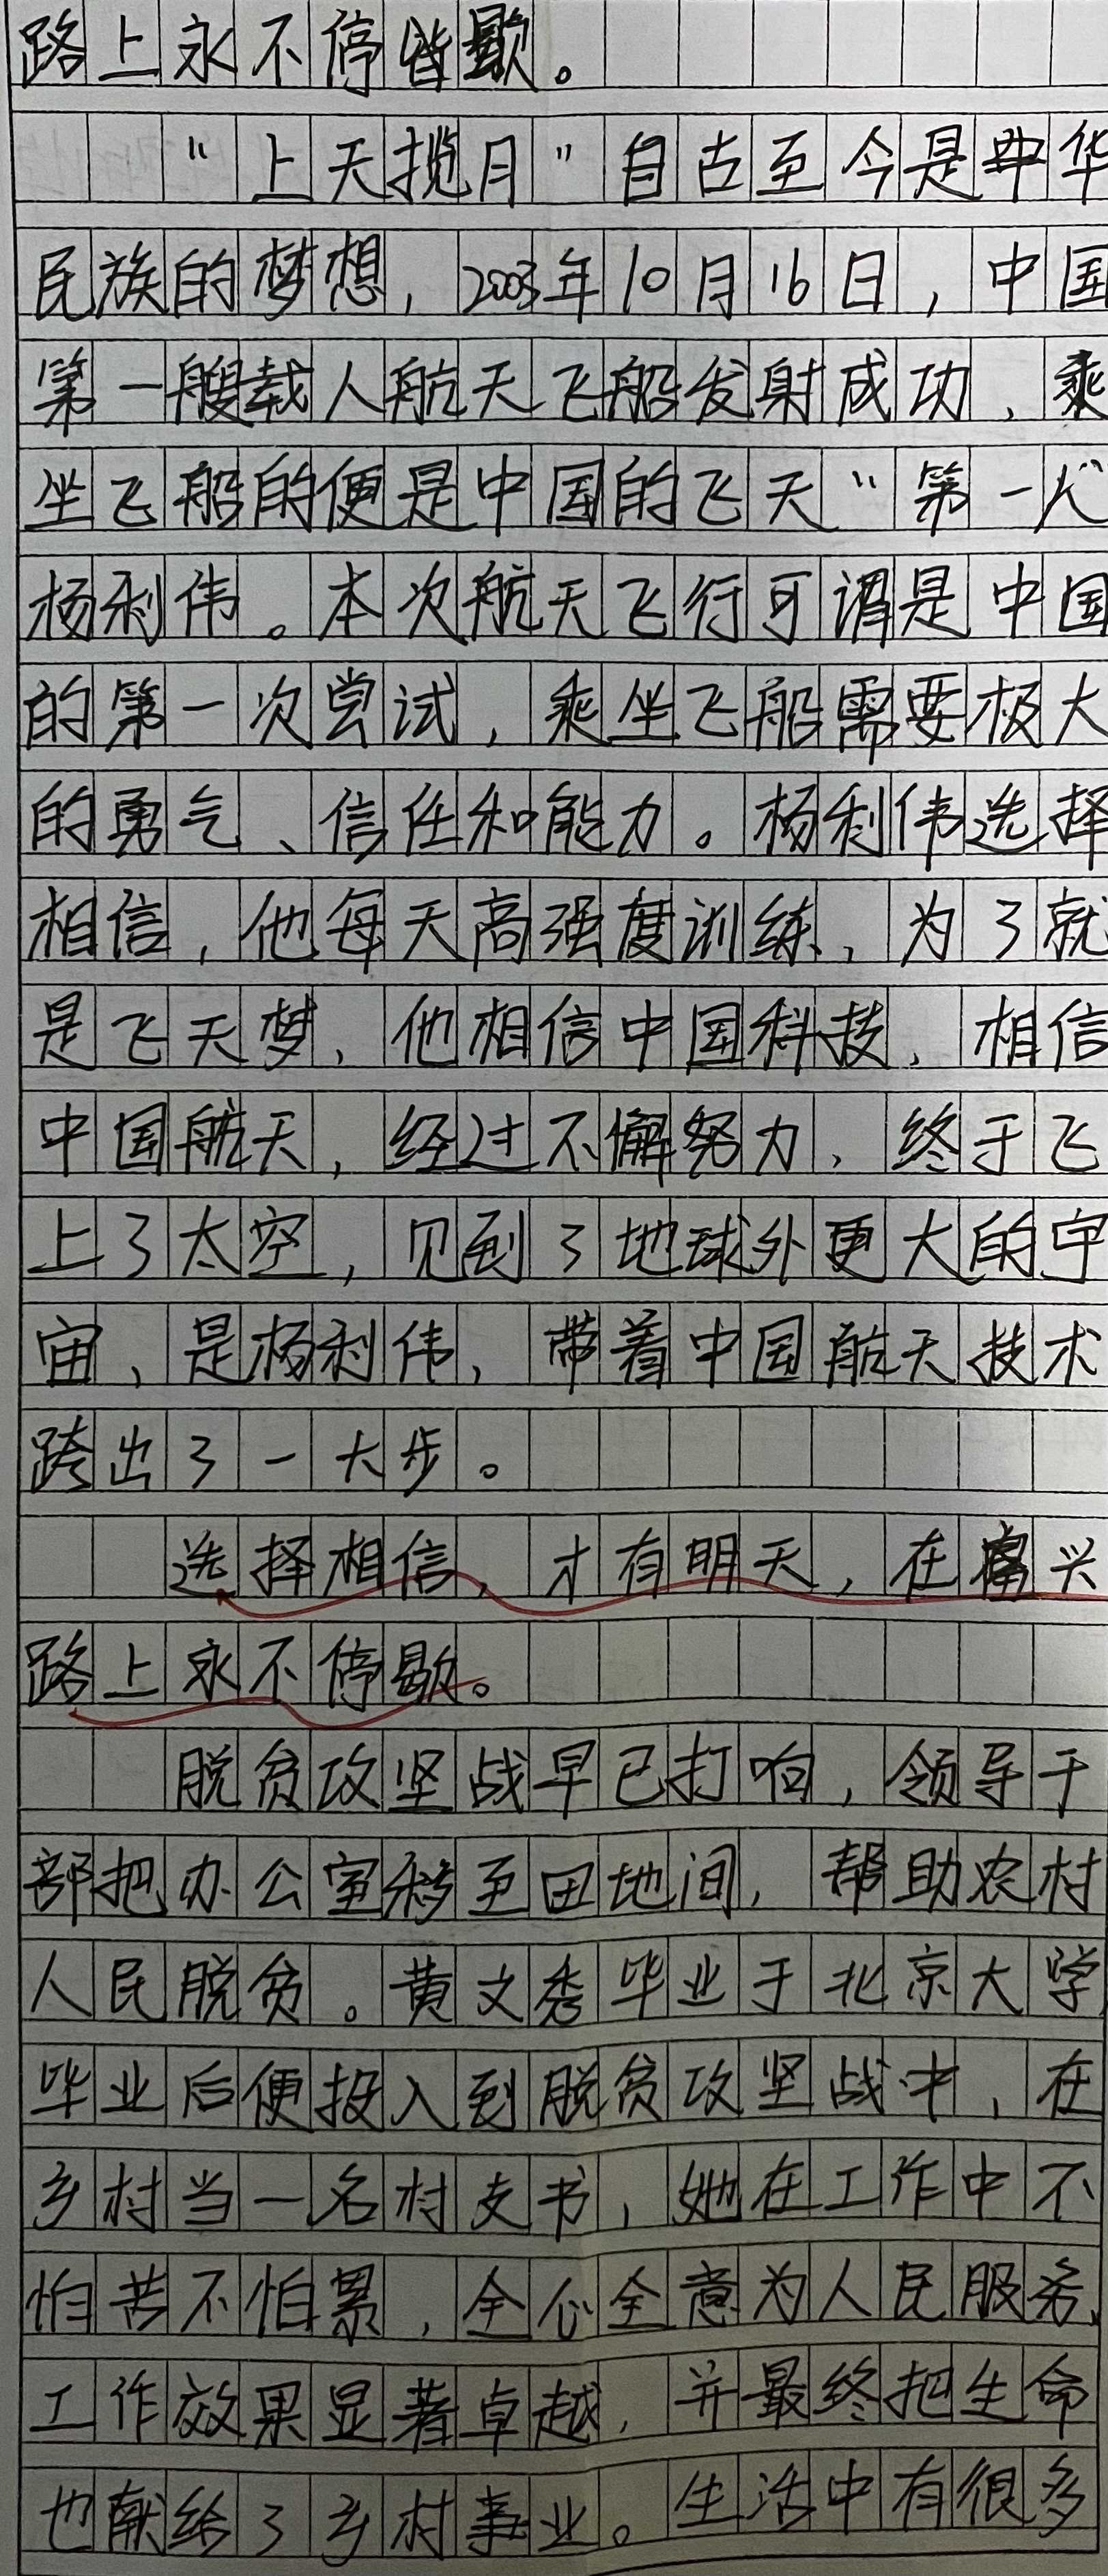 路上永不停歇。
“上天揽月”自古至今是中华
民族的梦想，2003年10月16日，中国
第一艘载人航天飞船发射成功，乘
坐飞船的便是中国的飞天“第一人”
杨利伟。本次航天飞行可谓是中国
的第一次尝试，乘坐飞船需要极大
的勇气、信任和能力。杨利伟选择
相信，他每天高强度训练，为了就
是飞天梦，他相信中国科技，相信
中国航天，经过不懈努力，终于飞
上了太空，见到了地球外更大的宇
宙，是杨利伟，带着中国航天技术
跨出了一大步。
选择相信，才有明天，在富兴
路上永不停歇。
脱贫攻坚战早已打响，领导干
部把办公室移至田地间，帮助农村
人民脱贫。黄文秀毕业于北京大学
毕业后便投入到脱贫攻坚战中，在
乡村当一名村支书，她在工作中不
怕苦不怕累，全心全意为人民服务，
工作效果显著卓越，并最终把生命
也献给了乡村事业。生活中有很多